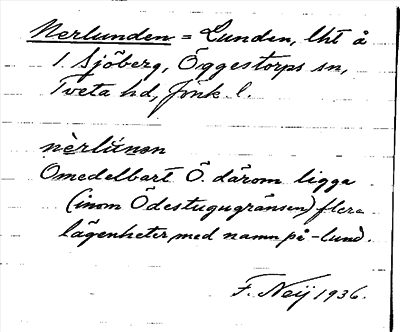 Nerlunden = Lunden, lht å
1 Sjöberg, Öggestorps sn,
Tveta hd, Jönk. l.
nèrlúnən
Omedelbart Ö. därom ligga
(inom Ödestugugränsen) flera
lägenheter med namn på -lund.
F. Neij 1936.